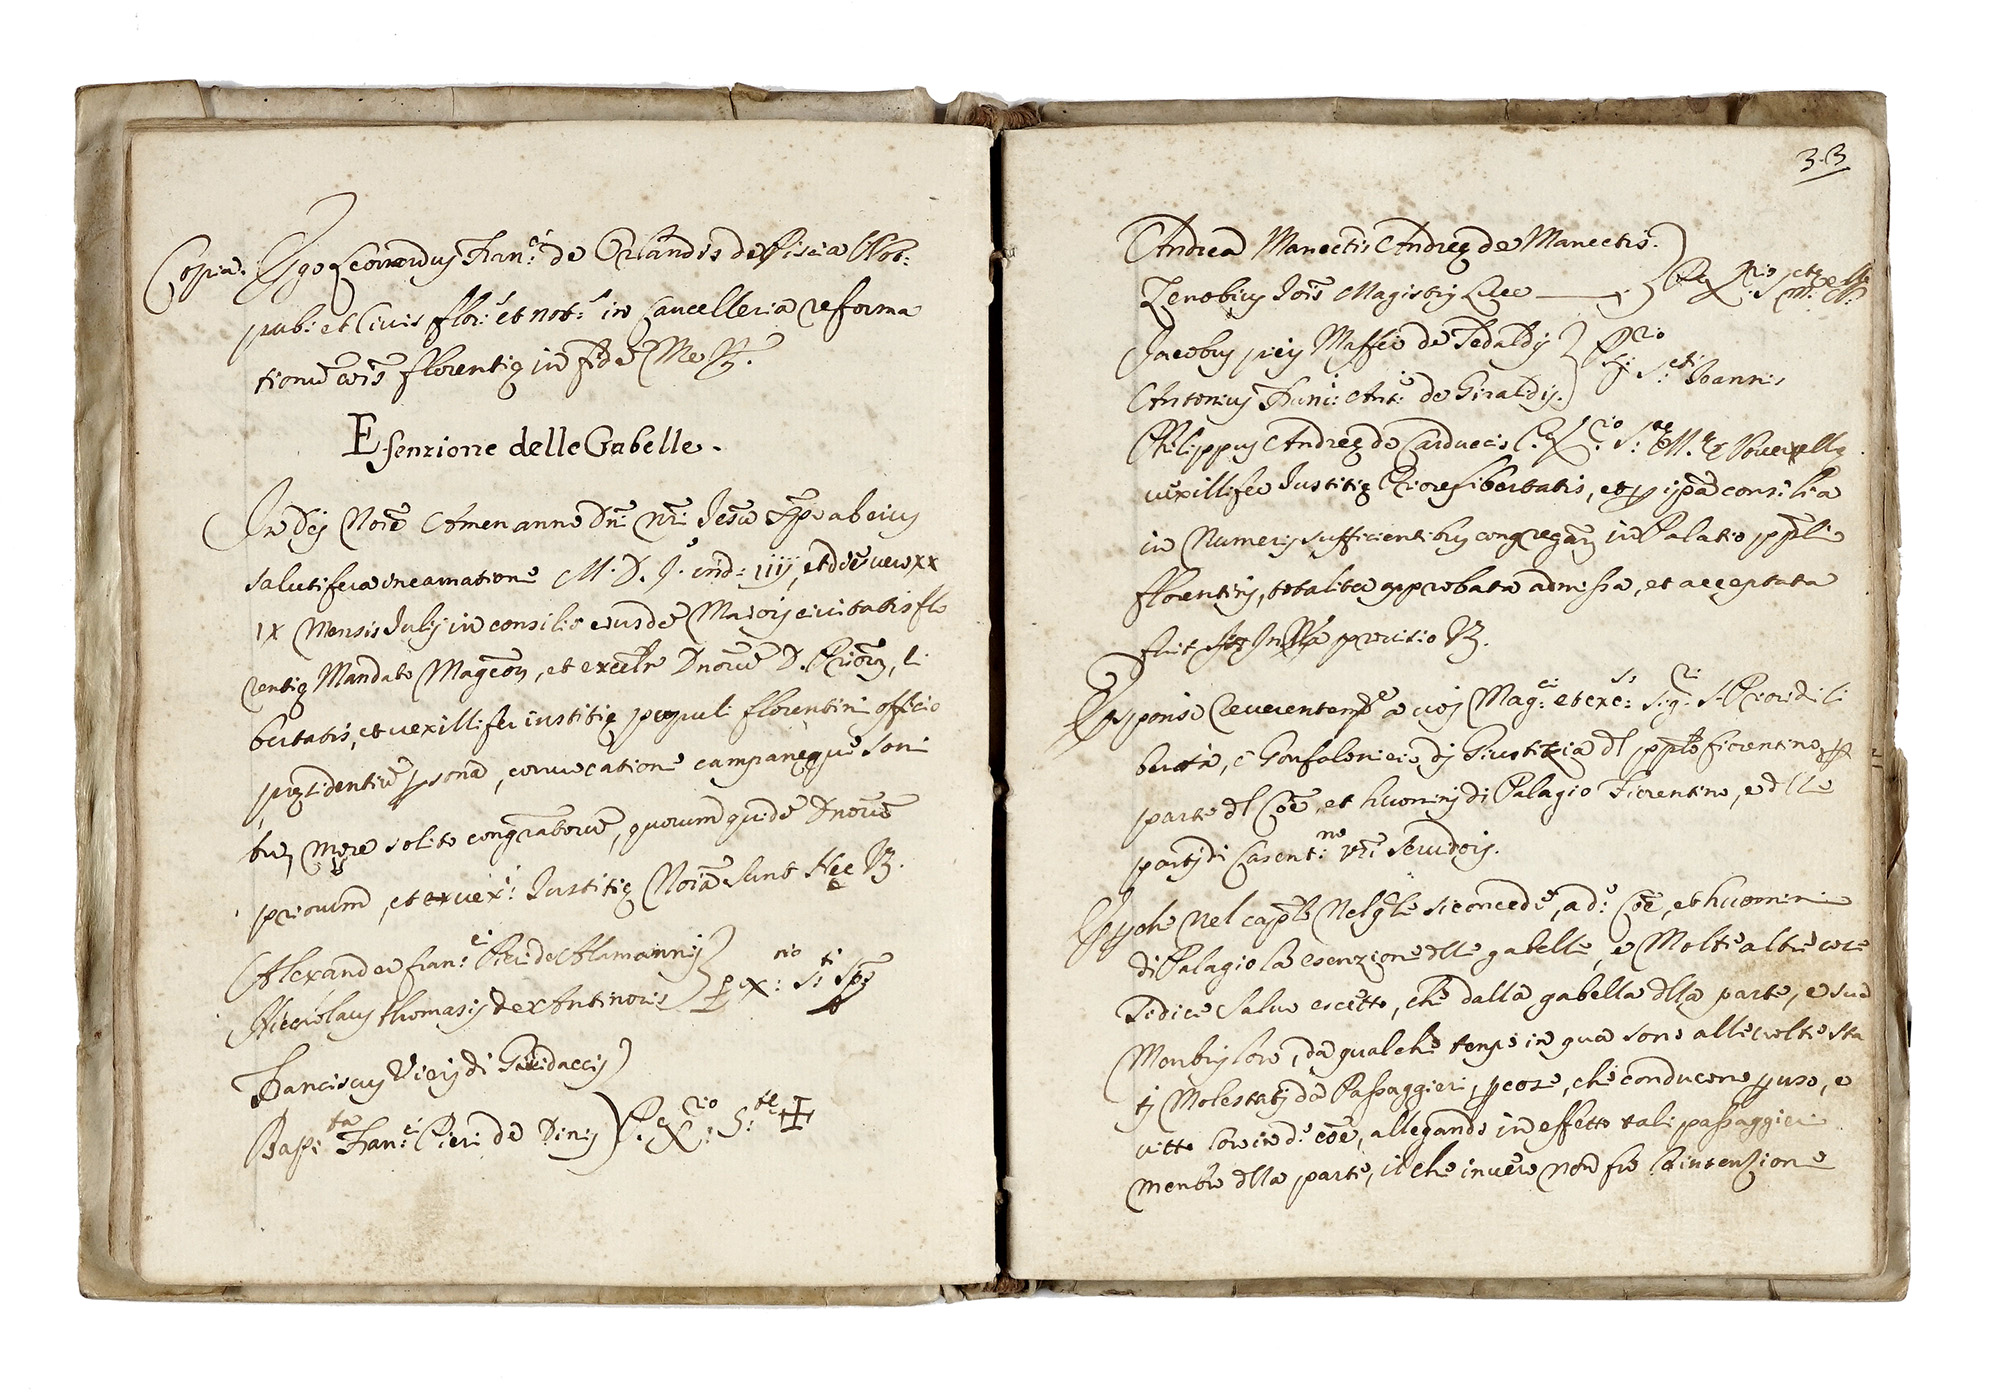 Copia. Ego Leonardus Fran:ci de Orlandis de Piscia Not:
pub: et Civis flor: et not: in Cancelleria reforma
tionũ cõis florentię in fidẽ Me
Esenzione delle Gabelle.
In Dej Noiẽ Amen anno Dñi: nr̃i: Jesu Xp̃o ab eius
salutifera incarnatione M. D. J. ind: iiij, et diẽ vero xx
ix Mensis Julij in consilio eiusdẽ Maioris civitatis flo
rentię Mandato Magcõrũ, et excelsorũ Dnorũ D. Priorũ, li
bertatis, et vexilliferi iustitię populi florentini officio
pręsidentiũ psonã, convocatione campanęque soni
tu, more solito congr̃atorũ, quorum quidẽ Dnorũ
priorum, et vex: Iustitię Noĩa sunt Hec
Alexander fran:ci Pieri de Alamannis
Niccolaus thomasij de Antinoris p ex:rio S:ti Sp̃s
Franciscus Pierij di Guidaccij
Bap:ta Fran:ci Pieri de Dinij P. ex:rio S:te ☩
33
Andrea Manectis Andreę de Manectis.
Zenobius Joĩs Magistri Luce
Jacobus pieri Maffei de Tedaldij
Antonius Ant: de Giraldij. S:cti Joannis
Philippus Andreę de Carduccis S:te M.e Novellę
vexillifer Iustitię Priores libertatis, et p ip̃a consilia
in Numeris sufficientibus congregat in Palatio pp̃li
florentini, totaliter approbata admissa, et acceptata
fuit Infr̃a provisio
Esponsi reverentemte a voj Mag:ci et exc:si Sig:ri S. Priori di li
bertà, e Gonfalonieri dj Giustitia dl pp̃lo fiorentino p
parte dl Cõe, et huominj di Palagio Fiorentino, e dlle
partj di Casent:no vr̃i Servidorj.
che nel cap̃lo Nelqle si concede, a d:o Cõe, et huomini
di Palagio la esenzione dlle gabelle, e Molte altre cose
si dice salvo eccetto, che dalla gabella dlla parte, e sua
Membrj loro, da qualche tempo in qua sono alle volte sta
tj Molestatj da Passaggieri, p cose, che conducono p uso, e
vitto loro in d:o cõe, allegando in effetto tali passaggieri
membro dlla parte, il che in vero non fu la intenzione